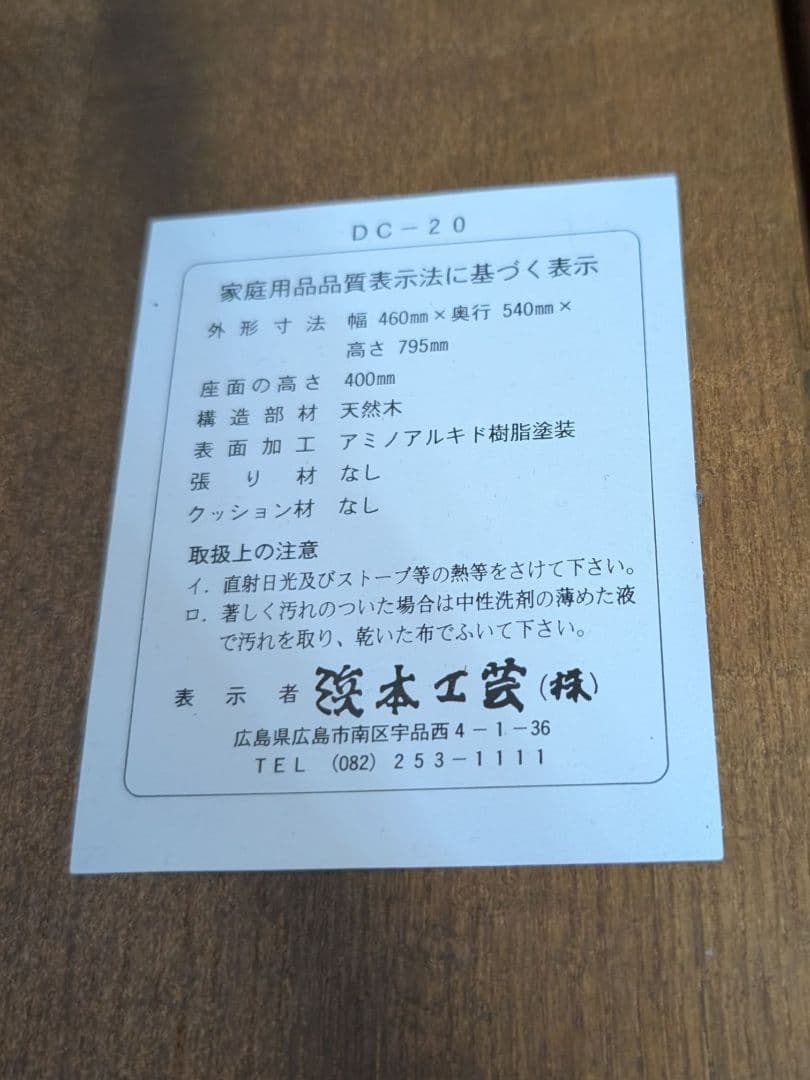 DC－20
家庭用品品質表示法に基づく表示
外形寸法 幅 460㎜×奥行 540㎜×
高さ 795㎜
座面の高さ 400㎜
構造部材 天然木
表面加工 アミノアルキド樹脂塗装
張り材 なし
クッション材 なし
取扱上の注意
イ．直射日光及びストーブ等の熱等をさけて下さい。
ロ．著しく汚れのついた場合は中性洗剤の薄めた液
で汚れを取り、乾いた布でふいて下さい。
表示者 浜本工芸(株)
広島県広島市南区宇品西4－1－36
TEL (082) 253－1111